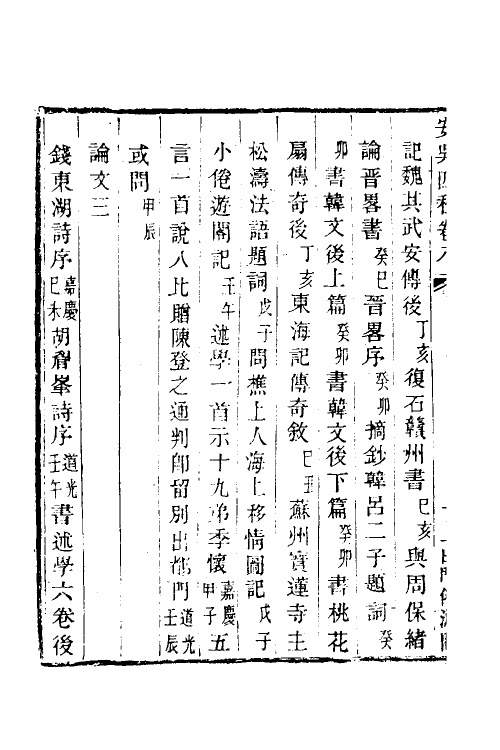 安吳四種卷八
記魏其武安傳後丁亥復石贛州書己亥與周保緒
論晉畧書癸巳晉畧序癸卯摘鈔韓呂二子題詞癸
卯書韓文後上篇癸卯書韓文後下篇癸卯書桃花
扇傳奇後丁亥東海記傳奇敘己丑蘇州寶蓮寺主
松濤法語題詞戊子問樵上人海上移情圖記戊子
小倦遊閣記壬午述學一首示十九弟季懷嘉慶甲子五
言一首說八比贈陳登之通判卽留別出都門道光壬辰
或問甲辰
論文三
錢東湖詩序嘉慶己未胡眉峯詩序道光壬午書述學六卷後